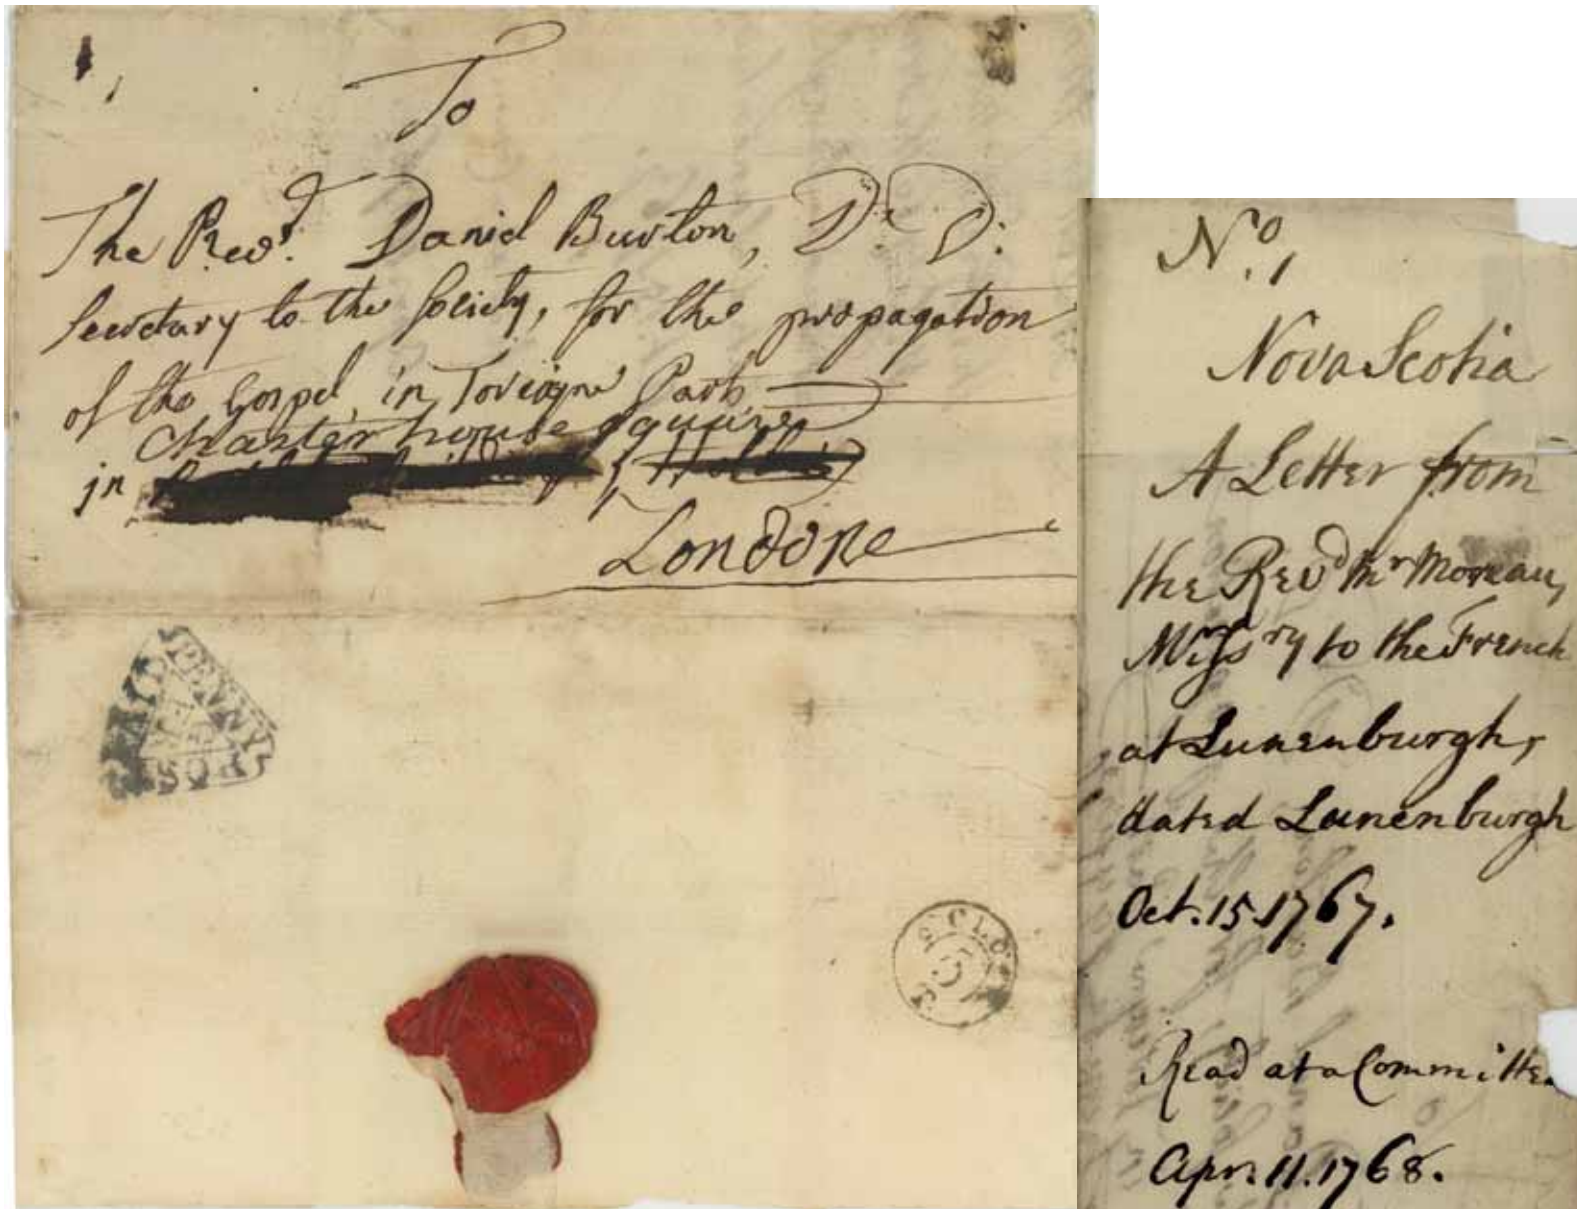 To
The Revd. Daniel Burton, D. D:
Secretary to the Society, for the propagation
of the Gospel, in Foreigne Parts
Charter house Square
in
Londone
PENNY
POST
PAID
No. 1
Nova Scotia
A Letter from
the Revd Mr Moreau,
Missry to the French
at Lunenburgh,
dated Lunenburgh
Oct. 15 1767.
Read at a Committee
Apr. 11. 1768.